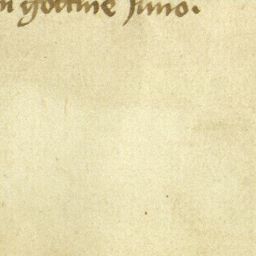 gottine Juno.